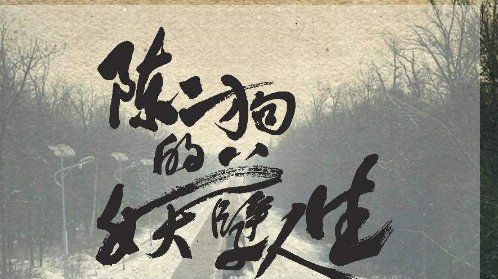 陈二狗
的
妖孽人生